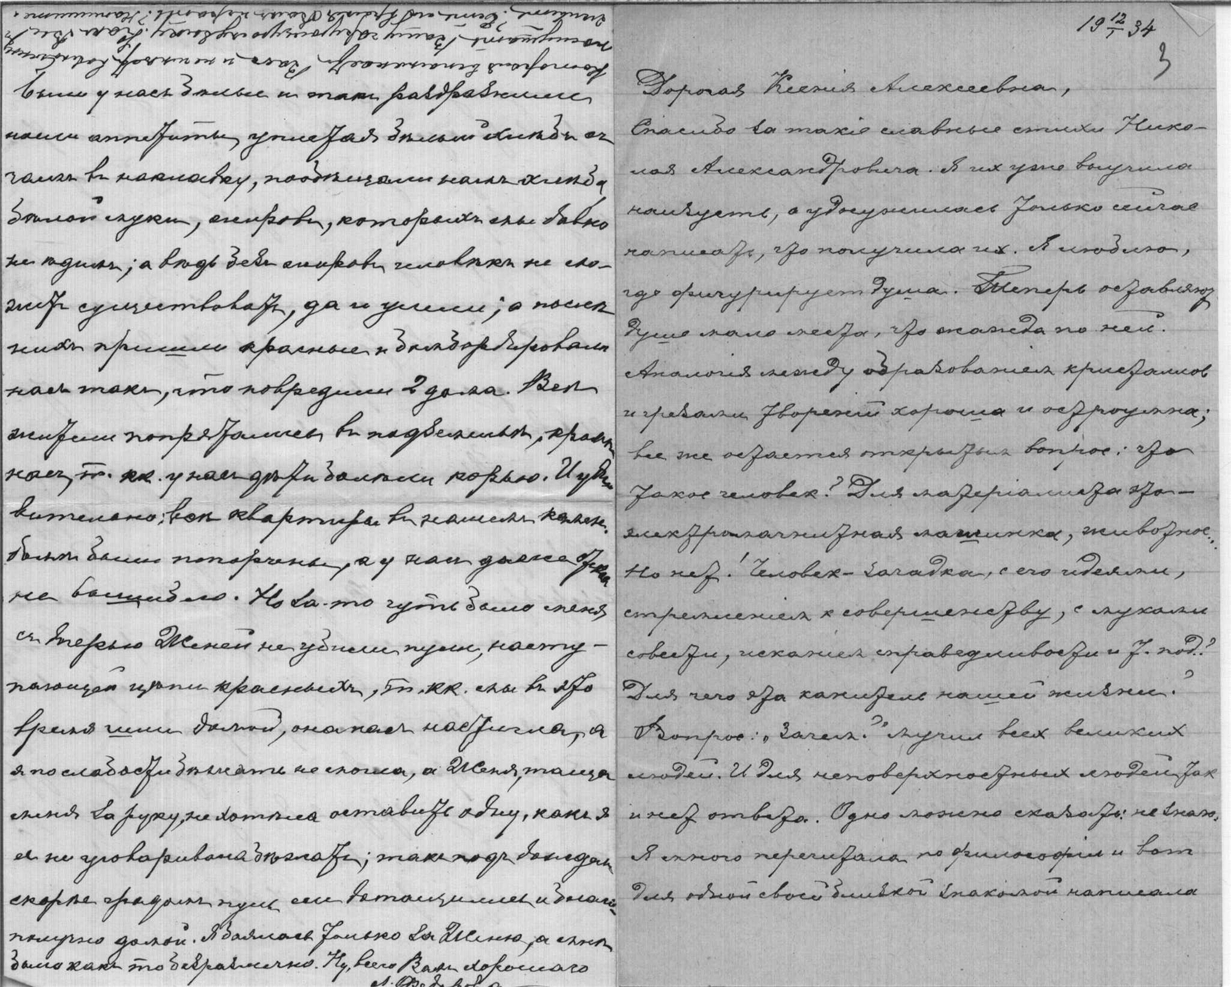 были у насъ белые и так раздразнили
наши аппетиты, уплетая белый хлебъ съ
чаемъ въ накладку, пообещали намъ хлеба,
белой муки, жировъ, которыхъ мы давно
не едимъ; а ведь безъ жировъ человекъ не мо-
жетъ существовать, да и ушли; а после
нихъ пришли красные и бомбордировали
насъ такъ, что повредили 2 дома. Все
жители попрятались въ подземелье, кроме
насъ, т. кк. у насъ дети болели корью. И уди
вительно; все квартиры въ нашемъ камен.
доме были попорчены, а у нас даже стекла
не вышибло. Но за-то чуть было меня
съ дочерью Женей не убили пули, насту-
пающей цепи красныхъ, т. кк. мы въ это
время шли домой, она насъ настигла, а
я по слабости бежать не могла, а Женя, таща
меня за руку, не хотела оставить одну, какъ я
ее не уговаривала бежать; такъ подъ дождемъ
скорее градомъ пуль мы дотащились и благо-
получно домой. Я боялась только за Женю, а мне
было какъ то безразлично. Ну, всего Вамъ хорошаго
19 12/1 34
3
Дорогая Ксения Алексеевна,
Спасибо за такие славные стихи Нико-
лая Александровича. Я их уже выучила
наизусть, а удосужилась только сейчас
написать, что получила их. Я люблю,
где фигурирует душа. Теперь оставляют
душе мало места, что жажда по ней.
Аналогия между образованием кристаллов
и грезами творений хороша и остроумна;
все же остается открытым вопрос: что
такое человек? Для материалиста это —
электромагнитная машинка, животное...
Но нет! Человек - загадка, с его идеями,
стремлением к совершенству, с муками
совести, исканием справедливости и т. под.?
Для чего эта канитель нашей жизни?
Вопрос: „Зачем?" мучил всех великих
людей. И для неповерхностных людей так
и нет ответа. Одно можно сказать: не знаю.
Я много перечитала по философии и вот
для одной своей близкой знакомой написала